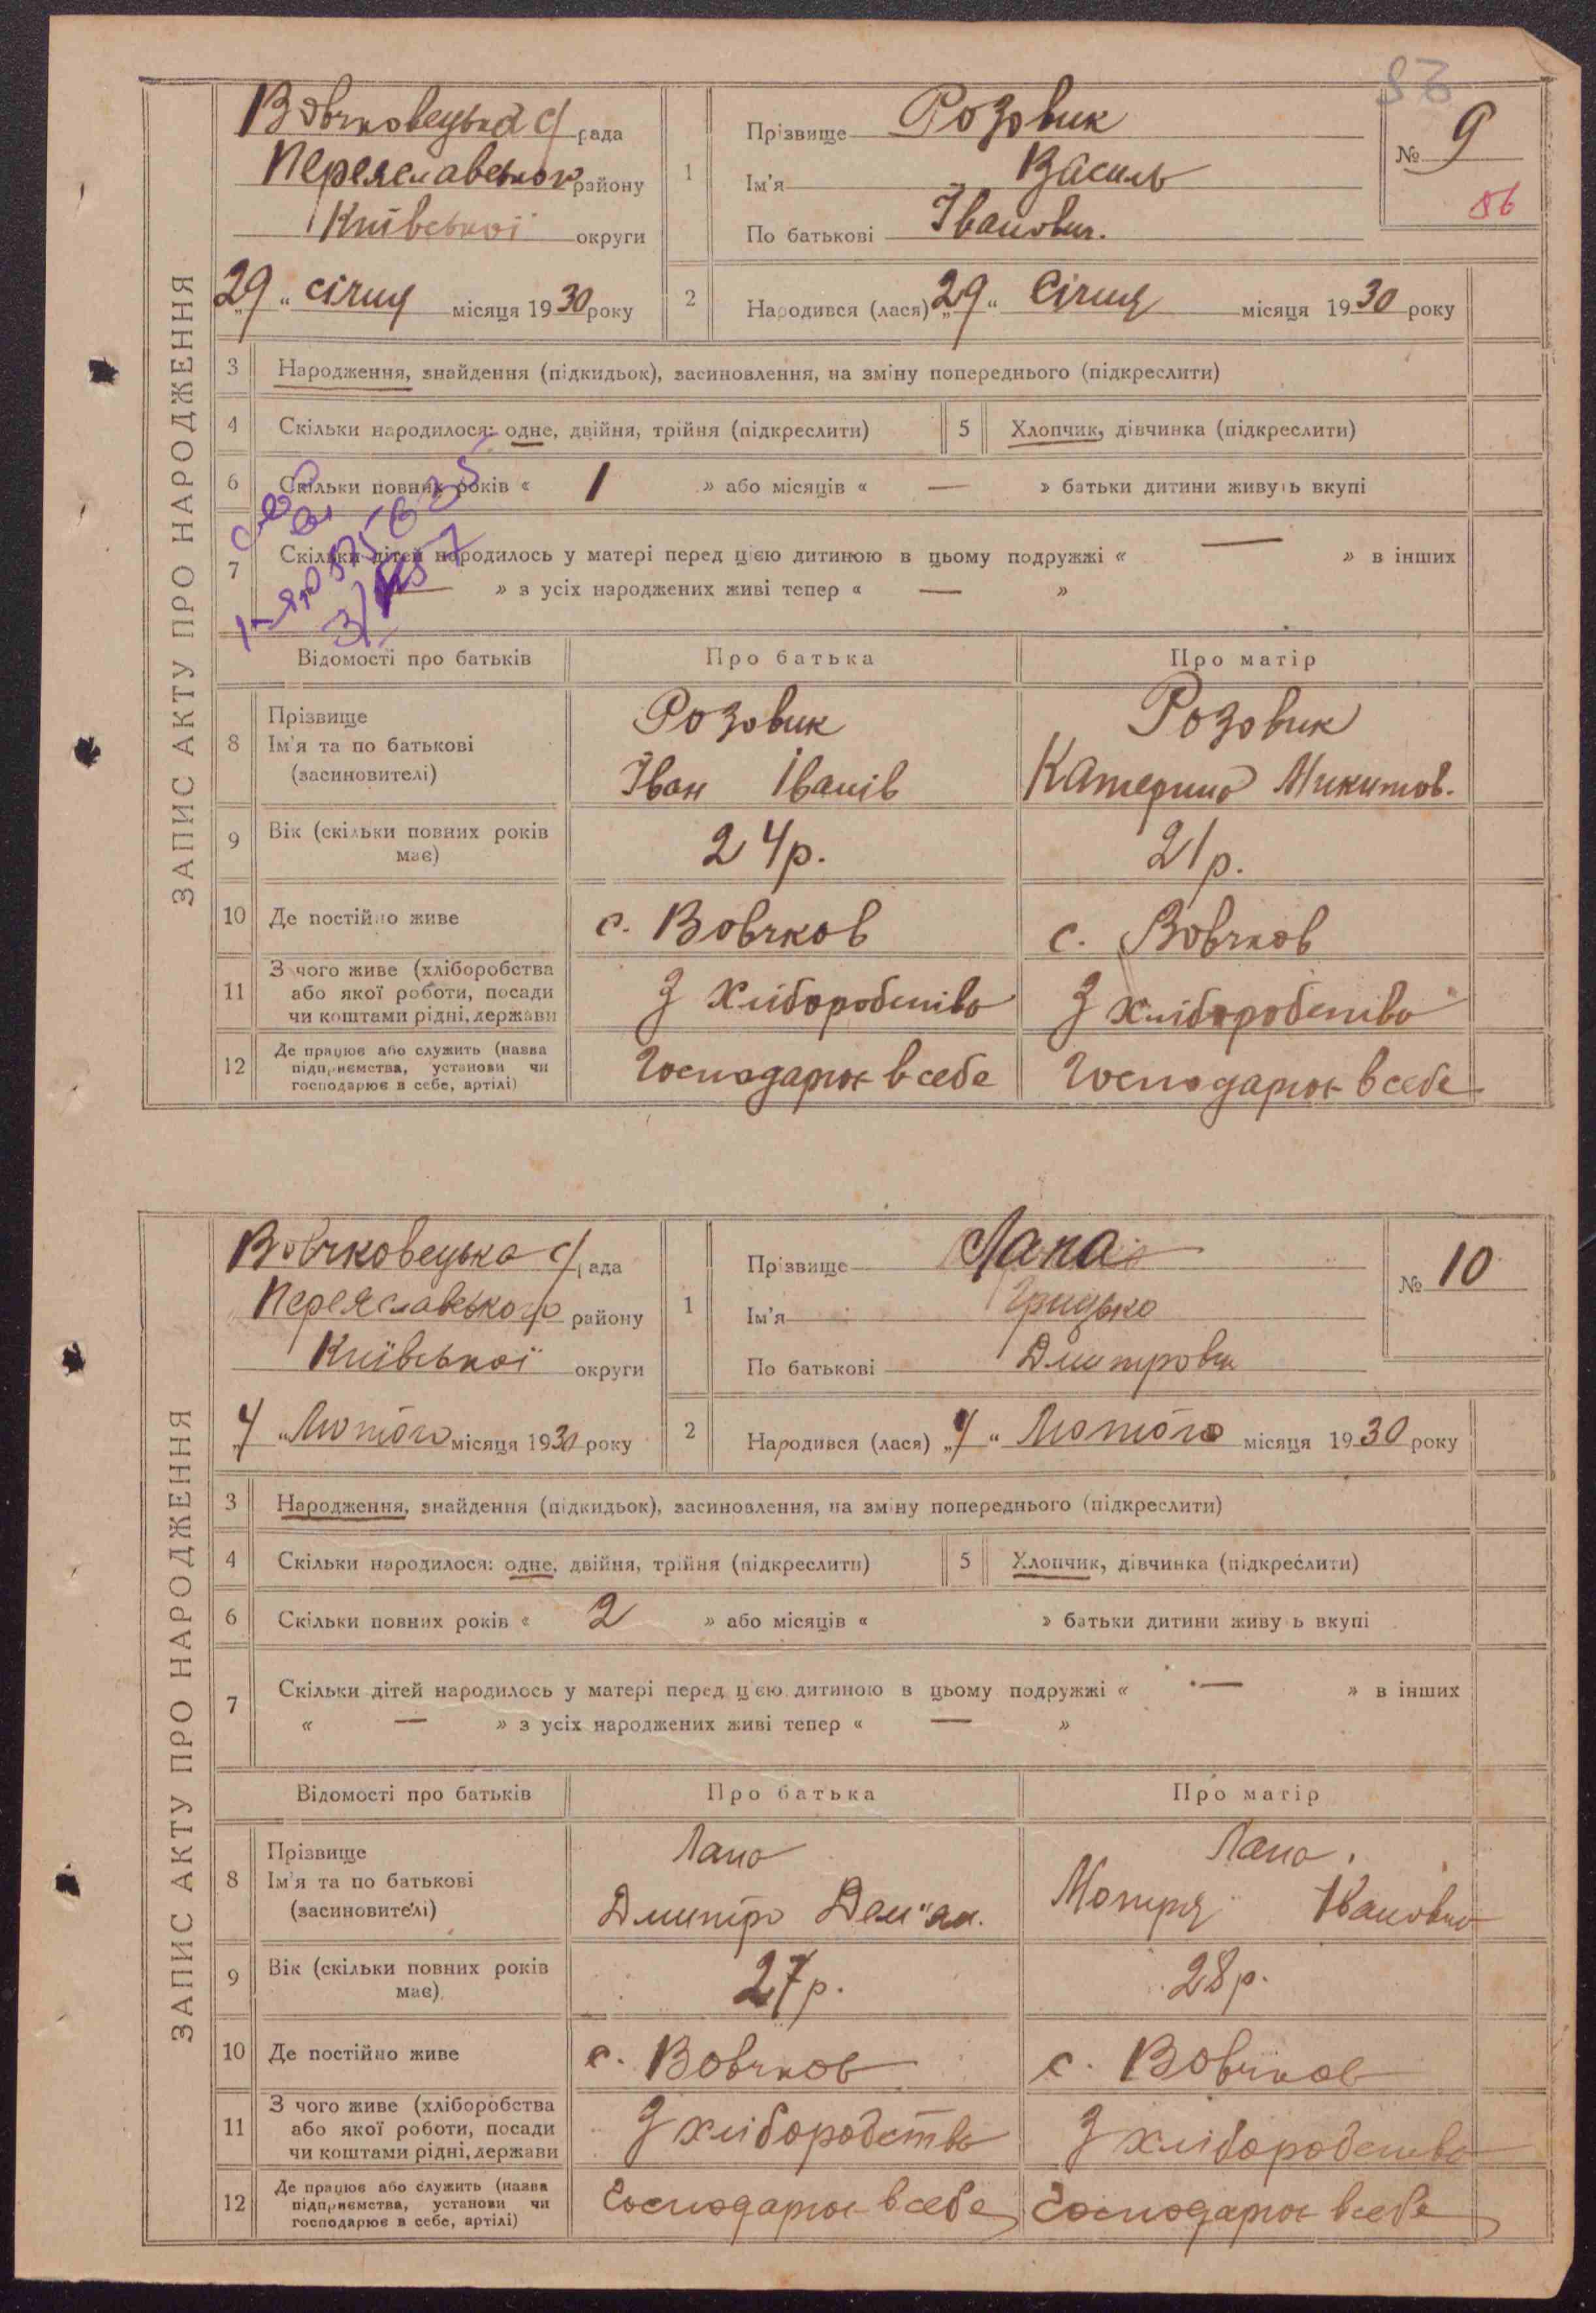 86
ЗАПИС АКТУ ПРО НАРОДЖЕННЯ
Вовчковецька с/рада
Переяславського району
Київської округи
„29“ січня місяця 1930 року
1
Прізвище Розовик
Ім'я Василь
По батькові Іванович.
№ 9
86
2
Народився (лася) „29“ Січня місяця 1930 року
3 Народження, знайдення (підкидьок), засиновлення, на зміну попереднього (підкреслити)
4 Скільки народилося: одне, двійня, трійня (підкреслити) 5 Хлопчик, дівчинка (підкреслити)
6 Скільки повних років « 1 » або місяців « — » батьки дитини живуть вкупі
7 Скільки дітей народилось у матері перед цією дитиною в цьому подружжі « — » в інших
— » з усіх народжених живі тепер « — »
Відомості про батьків Про батька Про матір
8 Прізвище
Ім'я та по батькові
(засиновителі)
Розовик
Іван Іванів
Розовик
Катерина Микитов.
9 Вік (скільки повних років
має)
24р.
21р.
10 Де постійно живе
с. Вовчков
с. Вовчков
11 З чого живе (хліборобства
або якої роботи, посади
чи коштами рідні, держави
З хліборобства
З хліборобства
12 Де працює або служить (назва
підприємства, установи чи
господарює в себе, артілі)
Господарює в себе
Господарює в себе
ЗАПИС АКТУ ПРО НАРОДЖЕННЯ
Вовчковецька с/рада
Переяславського району
Київської округи
„4“ Лютого місяця 1930 року
1
Прізвище Лапа
Ім'я Грицько
По батькові Дмитрович
№ 10
2
Народився (лася) „4“ Лютого місяця 1930 року
3 Народження, знайдення (підкидьок), засиновлення, на зміну попереднього (підкреслити)
4 Скільки народилося: одне, двійня, трійня (підкреслити) 5 Хлопчик, дівчинка (підкреслити)
6 Скільки повних років « 2 » або місяців « » батьки дитини живуть вкупі
7 Скільки дітей народилось у матері перед цією дитиною в цьому подружжі « — » в інших
« — » з усіх народжених живі тепер « — »
Відомості про батьків Про батька Про матір
8 Прізвище
Ім'я та по батькові
(засиновителі)
Лапа
Дмитро Дем"ян.
Лапа.
Мотря Івановна
9 Вік (скільки повних років
має)
27р.
28р.
10 Де постійно живе
с. Вовчков
с. Вовчков
11 З чого живе (хліборобства
або якої роботи, посади
чи коштами рідні, держави
З хліборобства
З хліборобства
12 Де працює або служить (назва
підприємства, установи чи
господарює в себе, артілі)
Господарює в себе
Господарює в себе